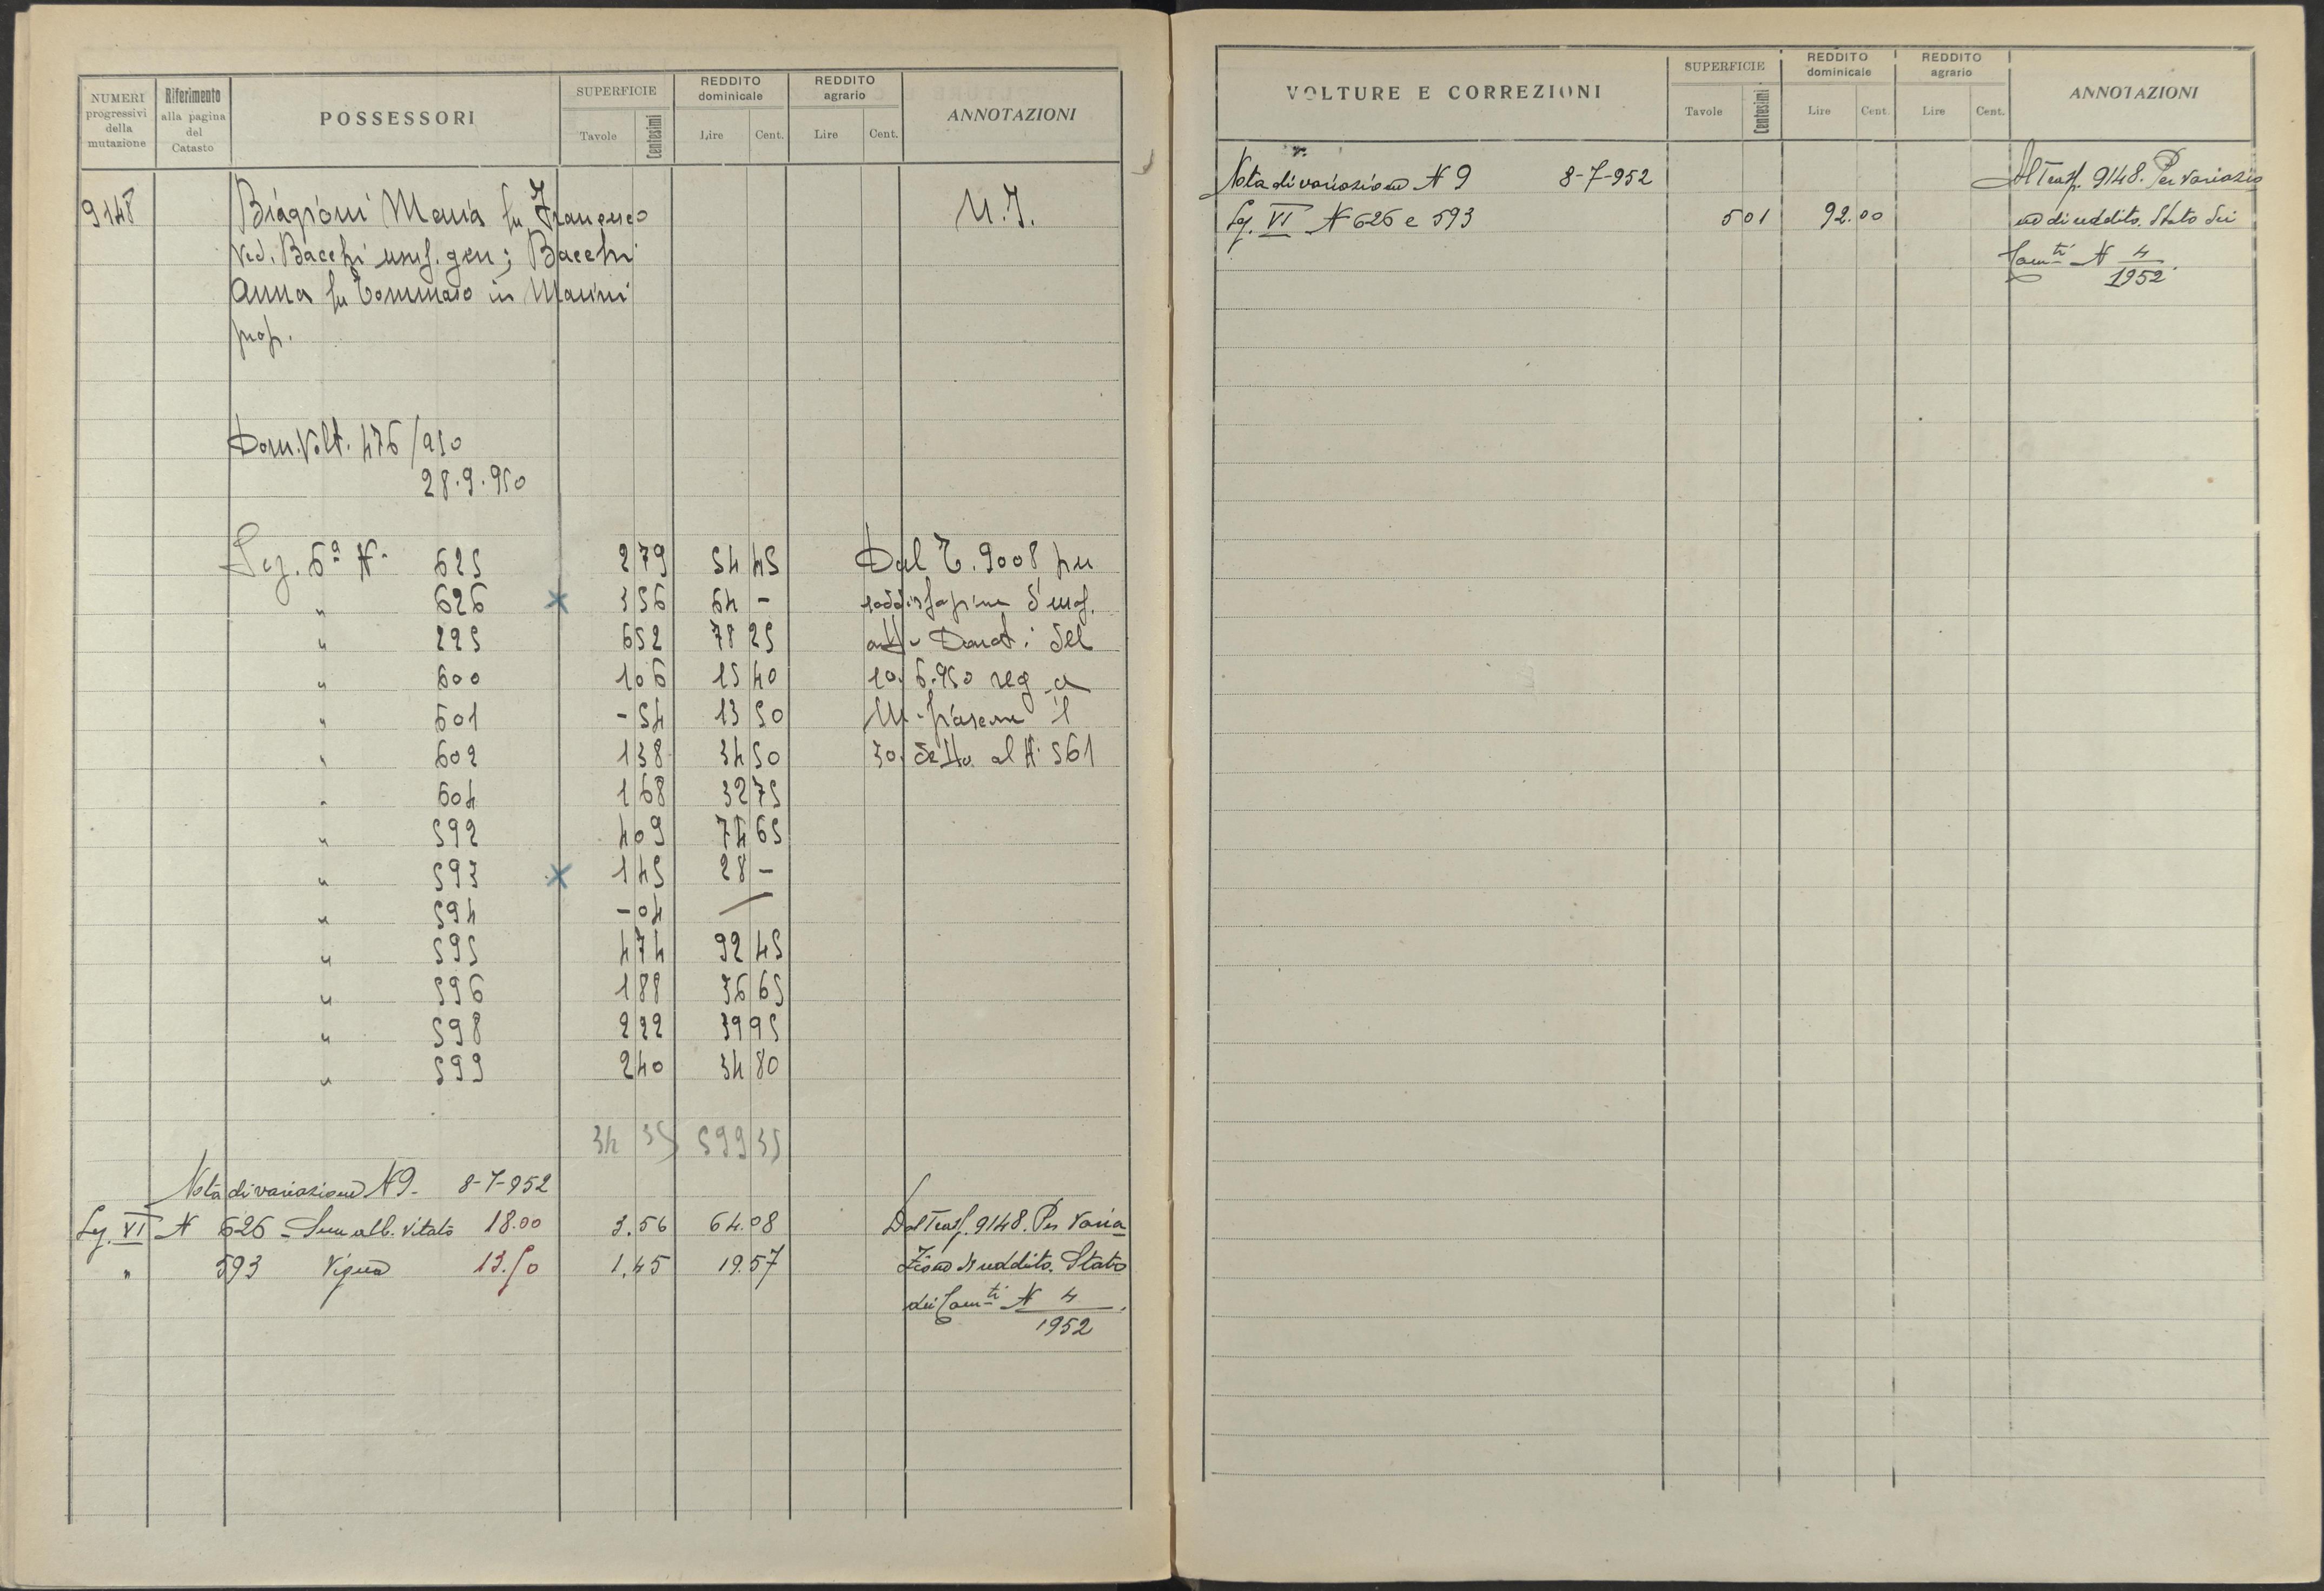 NUMERI progressivi della mutazione | Riferimento alla pagina del Catasto | POSSESSORI | SUPERFICIE Tavole Centesimi | REDDITO dominicale Lire Cent. | REDDITO agrario Lire Cent. | ANNOTAZIONI
9148 Biagioni Maria fu Francesco U.I.
Ved. Bacchi usuf. gen; Bacchi
Anna fu Tommaso in Marini
prop.
Dom. Volt. 476/950
28.9.950
Sez. 6ª N. 625 2 79 54 45 Dal T. 9008 per
" 626 × 3 56 64 - d'usuf.
" 225 6 52 78 25 Donati del
" 600 1 06 15 40 10.6.950 reg a
" 601 - 54 13 50 il
" 602 1 38 34 50 30. detto al N. 561
" 604 1 68 32 75
" 592 4 09 74 65
" 593 × 1 45 28 -
" 594 - 04 —
" 595 4 74 92 45
" 596 1 88 36 65
" 598 2 22 39 95
" 599 2 40 34 80
34 35 599 35
Nota di variazione N 9. 8-7-952
Sez. VI N 626 - Sem. alb. vitato 18.00 3.56 64.08 Dal Trasf. 9148. Per Varia
" 593 Vigna 13.50 1.45 19.57 zione di reddito. Stato
dei Cam.ti N 4
1952
VOLTURE E CORREZIONI | SUPERFICIE Tavole Centesimi | REDDITO dominicale Lire Cent. | REDDITO agrario Lire Cent. | ANNOTAZIONI
Nota di variazione N 9 8-7-952 Al Trasf. 9148. Per variazio
Sez. VI N 626 e 593 5 01 92.00 ne di reddito. Stato dei
Cam.ti N 4
1952